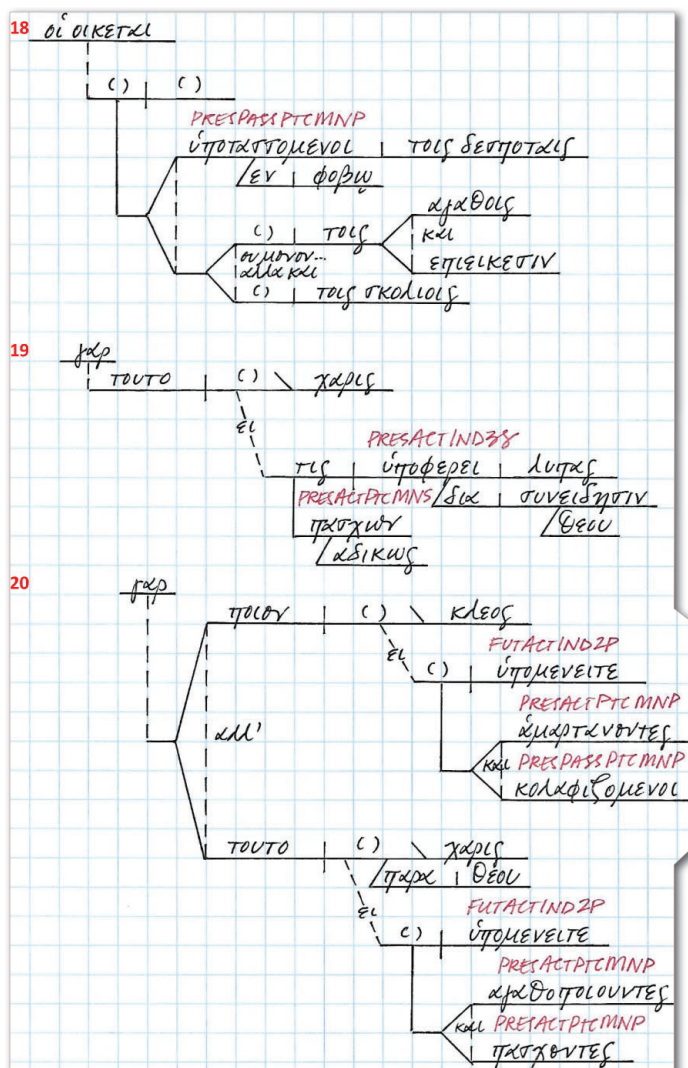 18 οἱ οικεται
( ) ( )
PRESPASSPTCMNP
ὑποτασσομενοι τοις δεσποταις
εν φοβῳ
αγαθοις
( ) τοις και
ου μονον...
αλλα και
επιεικεσιν
( ) τοις σκολιοις
19
γαρ
τουτο ( ) χαρις
ει
PRESACTIND3S
τις ὑποφερει λυπας
PRESACTPTCMNS δια συνειδησιν
πασχων θεου
αδικως
20
γαρ
ποιον ( ) κλεος
FUTACTIND2P
ει ( ) ὑπομενειτε
PRESACTPTCMNP
ἁμαρτανοντες
αλλ'
και PRESPASSPTCMNP
κολαφιζομενοι
τουτο ( ) χαρις
παρα θεου
ει FUTACTIND2P
( ) ὑπομενειτε
PRESACTPTCMNP
αγαθοποιουντες
και PRESACTPTCMNP
πασχοντες